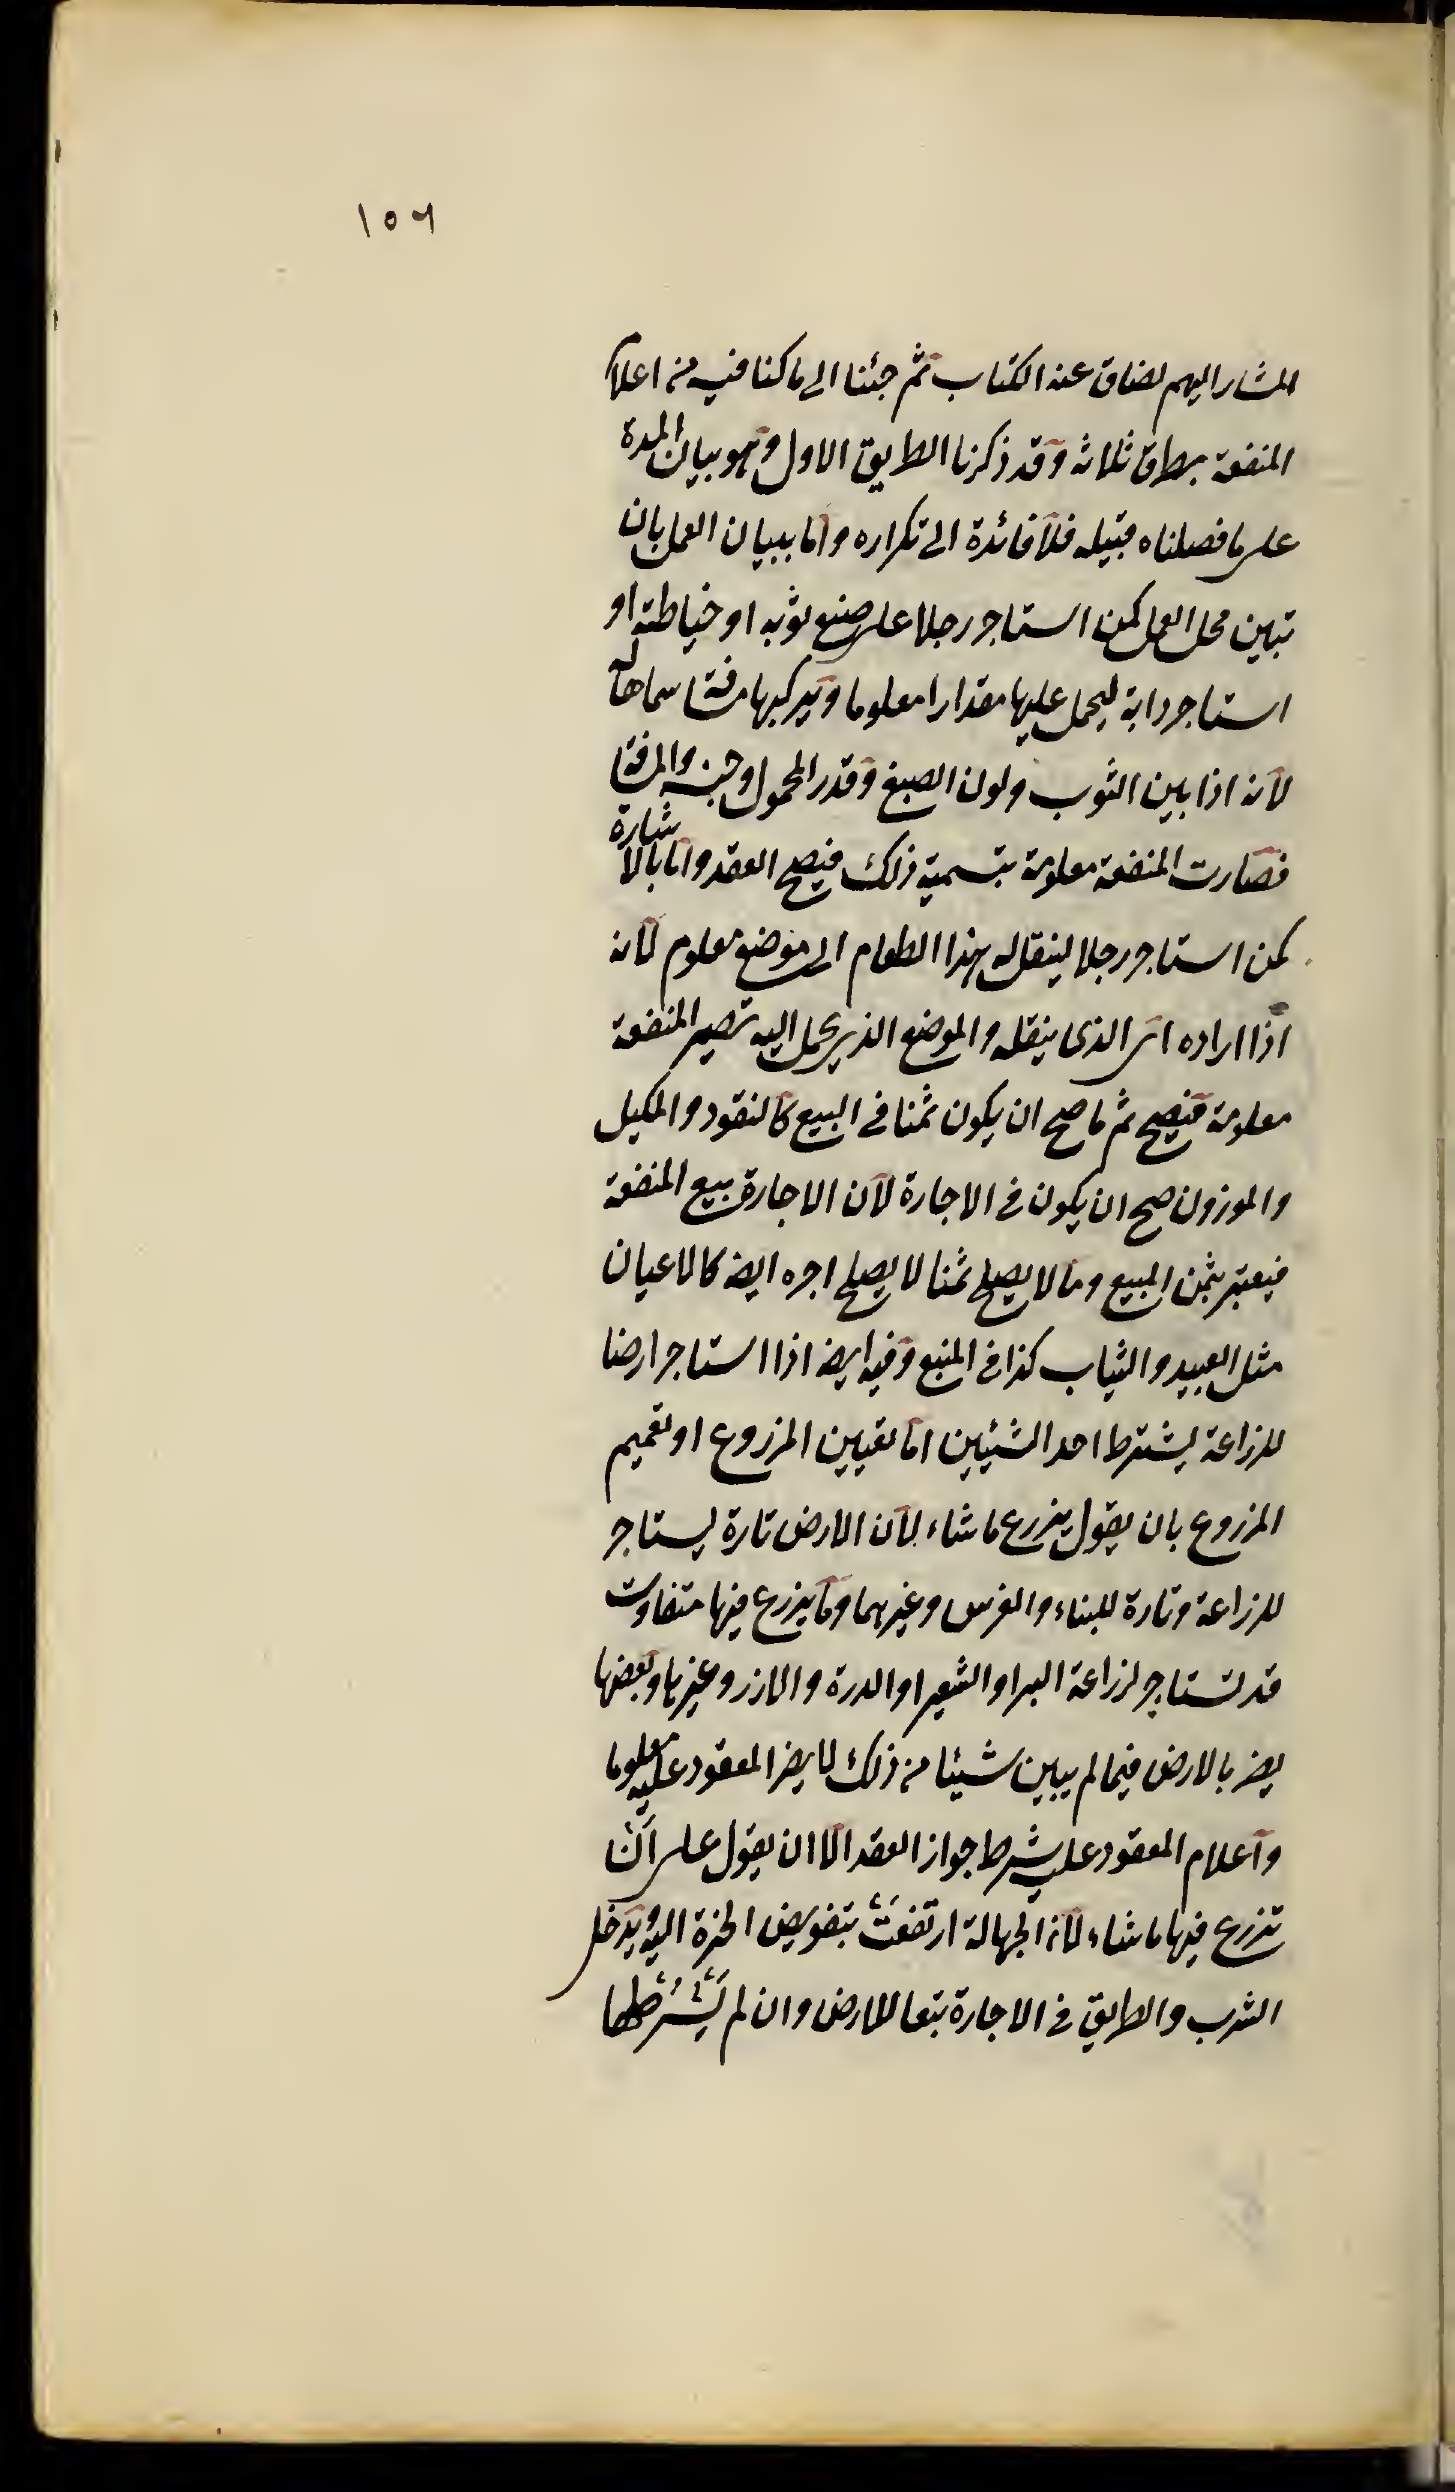 ١٥٦
المشار اليهم لضاق عنه الكتاب ثم جئنا الى ما كنا فيه من اعلام
المنفعة بطرق ثلاثة وقد ذكرنا الطريق الاول وهو بيان المدة
على ما فصلناه قبيله فلا فائدة الى تكراره واما ببيان العمل بان
تبين محل العمل كمن استاجر رجلا على صبغ ثوبه او خياطته او
استاجر دابة ليحمل عليها مقدارا معلوما ويركبها مسافة سماها
لانه اذا بين الثوب ولون الصبغ وقدر المحمول وجنسه والمسافة
فصارت المنفعة معلومة بتسمية ذلك فيصح العقد واما بالاشارة
كمن استاجر رجلا لينقل له هذا الطعام الى موضع معلوم لانه
اذا اراده اى الذى ينقله والموضع الذى يحمل اليه تصير المنفعة
معلومة فيصح ثم ما صح ان يكون ثمنا فى البيع كالنقود والمكيل
والموزون صح ان يكون فى الاجارة لان الاجارة بيع المنفعة
فيعتبر بثمن المبيع وما لا يصلح ثمنا لا يصلح اجره ايضا كالاعيان
مثل العبيد والثياب كذا فى المنبع وفيه ايضا اذا استاجر ارضا
للزراعة يشترط احد الشيئين اما تعيين المزروع او تعميم
المزروع بان يقول يزرع ما شاء لان الارض تارة يستاجر
للزراعة وتارة للبناء والغرس وغيرهما وما يزرع فيها متفاوت
قد تستاجر لزراعة البر او الشعير او الدرة والارز وغيرها وبعضها
يضر بالارض فيما لم يبين شيئا من ذلك لا يصير المعقود عليه معلوما
واعلام المعقود عليه شرط جواز العقد الا ان يقول على ان
تزرع فيها ما شاء لان الجهالة ارتفعت بتفويض الخيرة اليه ويدخل
الشرب والطريق فى الاجارة تبعا للارض وان لم يشترطها